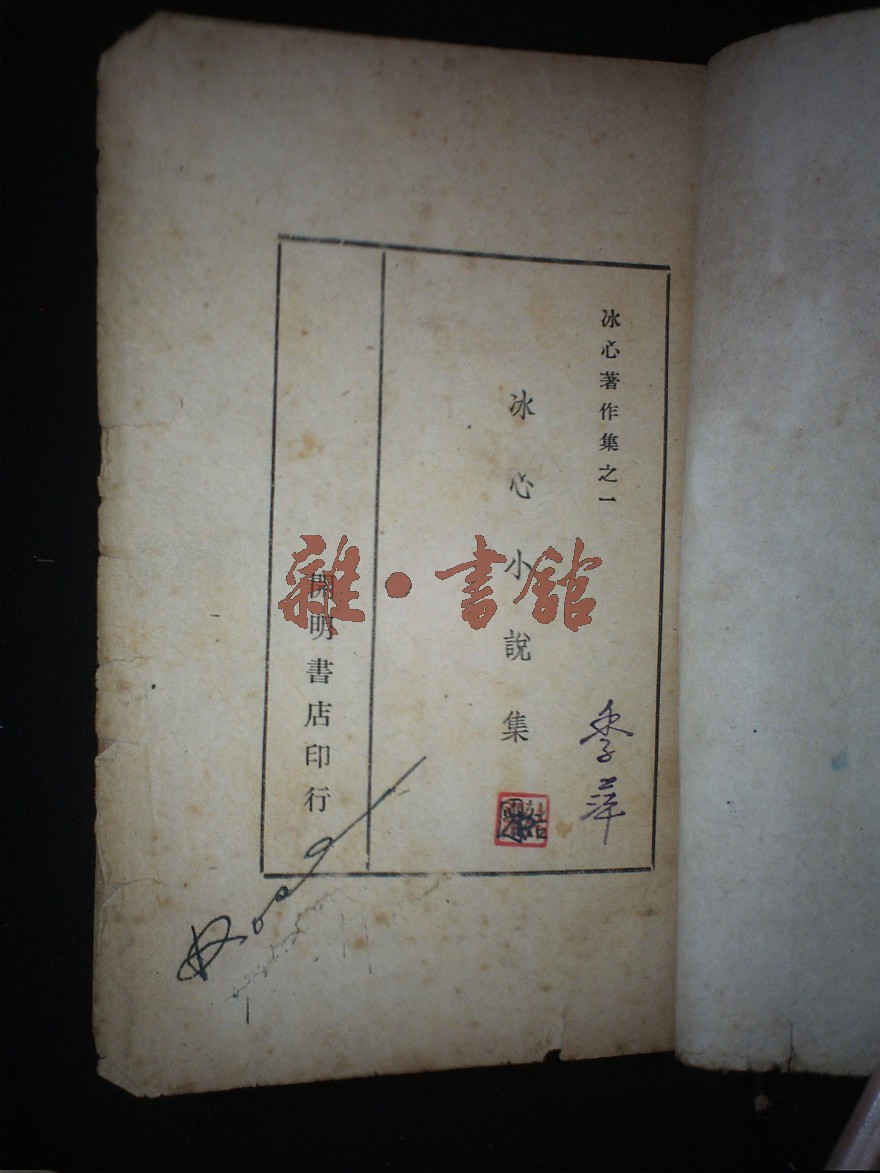 冰心著作集之一
冰心小說集
季萍
開明書店印行
雜·書館